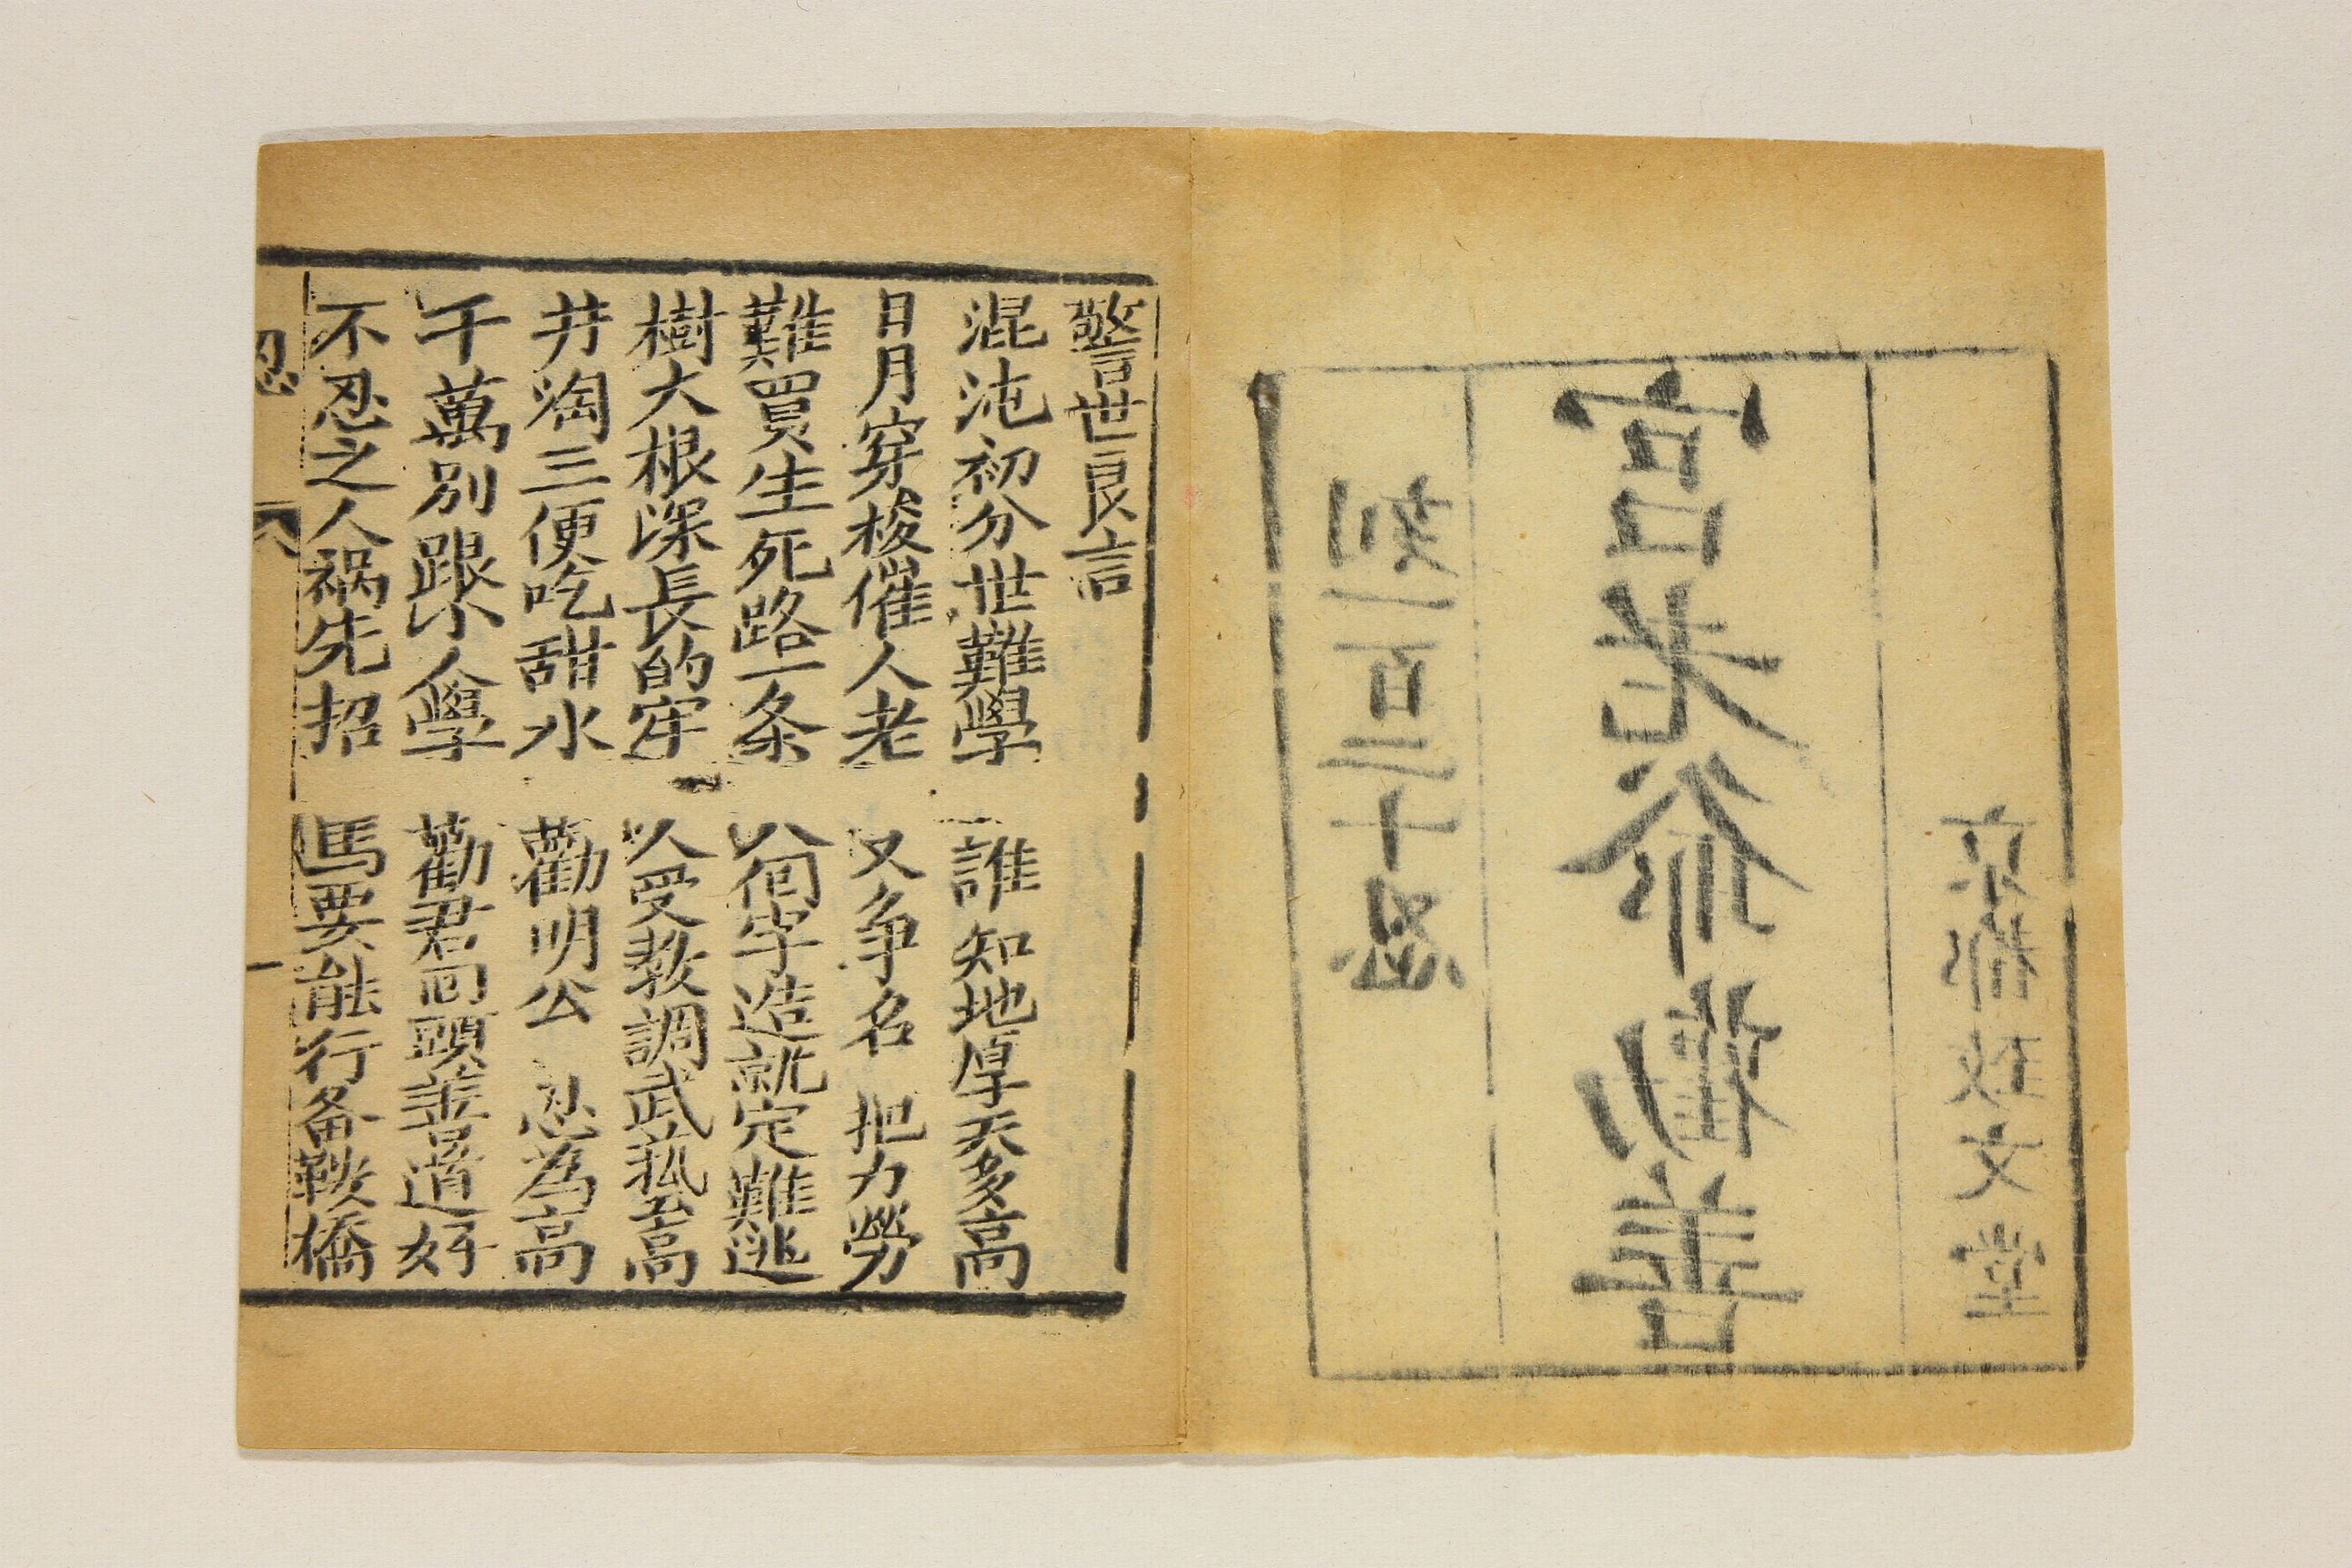 京都致文堂
宫老爷勸善
刻一百三十忍
警世良言
混沌初分世難學 誰知地厚天多高
日月穿梭催人老 又争名 把力勞
難買生死路一条 八個字造就定難逃
樹大根深長的牢 人受教調武藝高
井淘三便吃甜水 勸明公 忍為高
千萬別跟小人學 勸君回頭善道好
不忍之人祸先招 馬要能行备鞍橋
忍 一